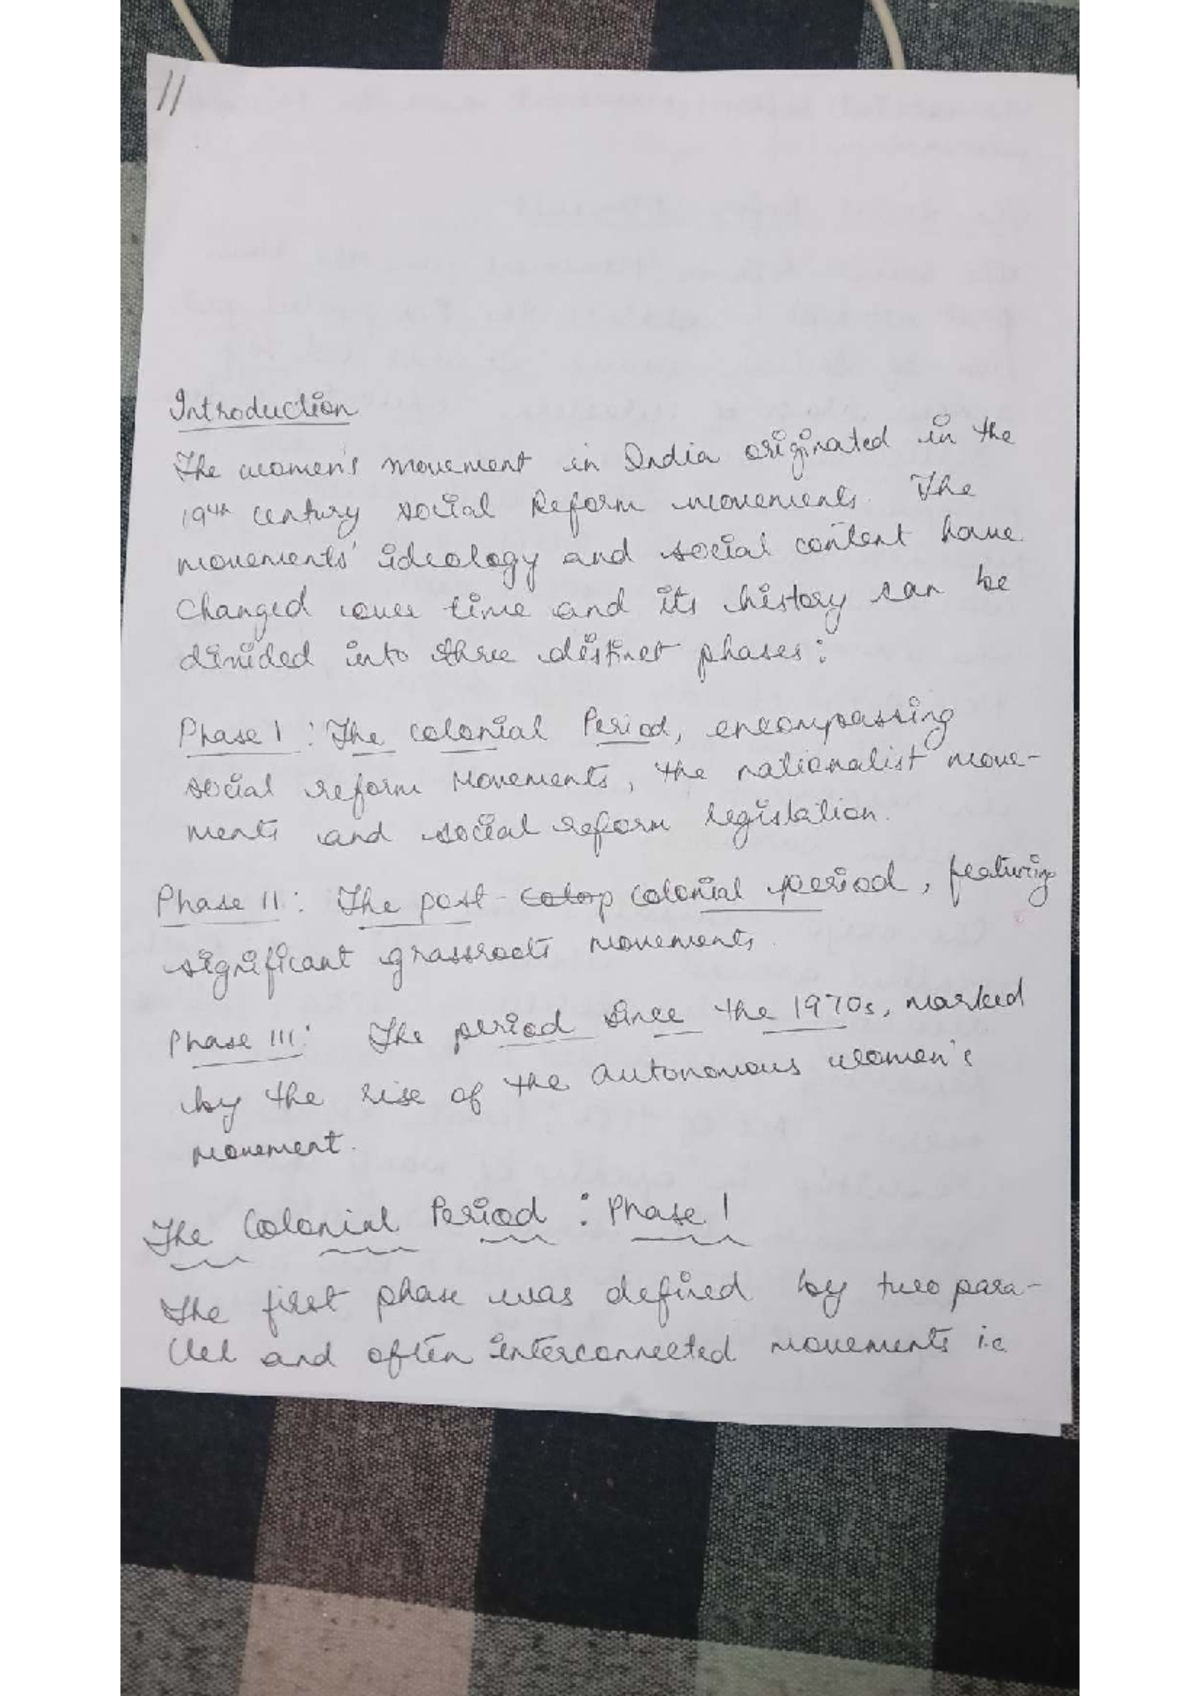 11
Introduction
The women's movement in India originated in the
19th century social Reform movements. The
movements' ideology and social content have
changed over time and its history can be
divided into three distinct phases:
Phase I : The colonial Period, encompassing
social reform Movements, the nationalist move-
ments and social reform legislation.
Phase II : The post - colop colonial period, featuring
significant grassroots movements.
Phase III : The period since the 1970s, marked
by the rise of the autonomous women's
movement.
The Colonial Period : Phase I
The first phase was defined by two para-
llel and often interconnected movements i.e